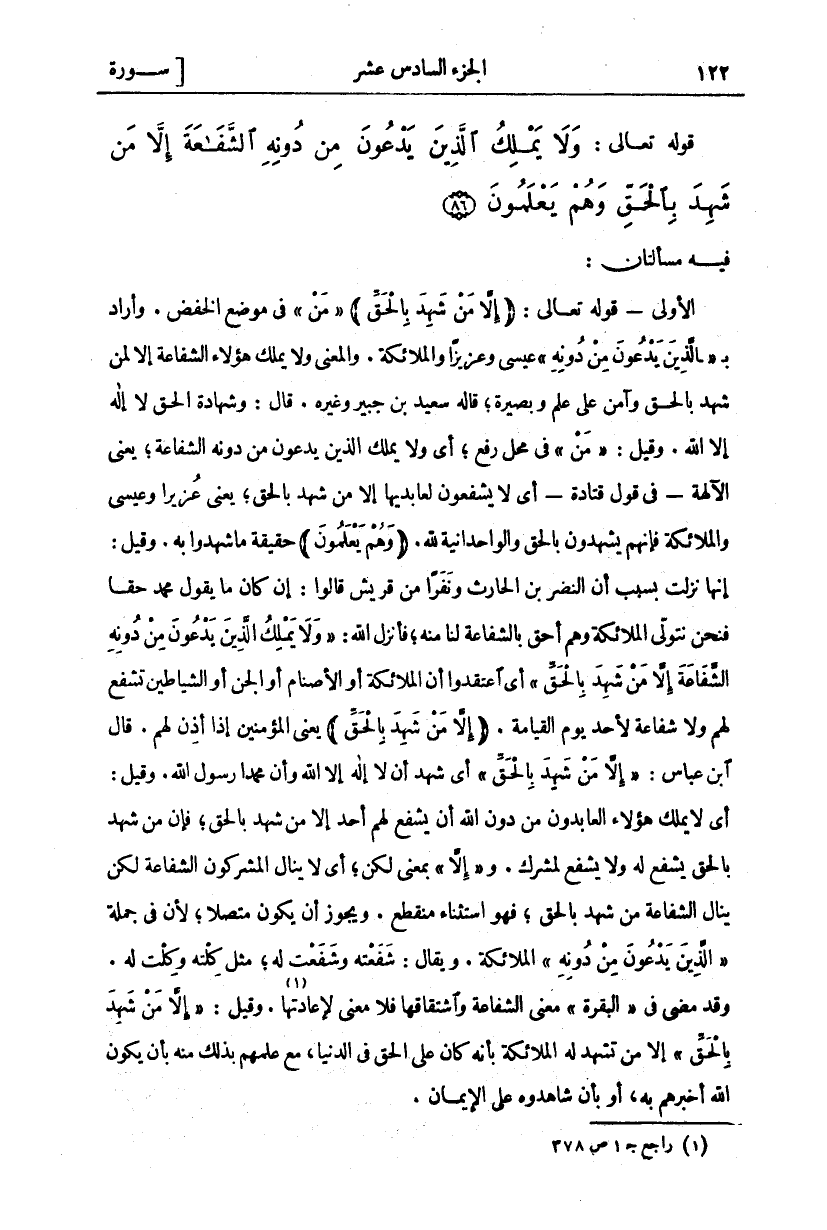 ١٢٢ الجزء السادس عشر [ ســورة
قوله تعالى : وَلَا يَمْلِكُ ٱلَّذِينَ يَدْعُونَ مِن دُونِهِ ٱلشَّفَـٰعَةَ إِلَّا مَن
شَهِدَ بِٱلْحَقِّ وَهُمْ يَعْلَمُونَ ﴿٨٦﴾
فيــه مسألتان :
الأولى — قوله تعالى : ﴿ إِلَّا مَنْ شَهِدَ بِالْحَقِّ ﴾ « مَنْ » فى موضع الخفض . وأراد
بـ « ـالَّذِينَ يَدْعُونَ مِنْ دُونِهِ » عيسى وعزيرًا والملائكة . والمعنى ولا يملك هؤلاء الشفاعة إلا لمن
شهد بالحـق وآمن على علم وبصيرة ؛ قاله سعيد بن جبير وغيره . قال : وشهادة الحـق لا إله
إلا الله . وقيل : « مَنْ » فى محل رفع ؛ أى ولا يملك الذين يدعون من دونه الشفاعة ؛ يعنى
الآلهة — فى قول قتادة — أى لا يشفعون لعابديها إلا من شهد بالحق ؛ يعنى عُزيرا وعيسى
والملائكة فإنهم يشهدون بالحق والواحدانية لله . ﴿ وَهُمْ يَعْلَمُونَ ﴾ حقيقة ماشهدوا به . وقيل :
إنها نزلت بسبب أن النضر بن الحارث ونَفَرًا من قريش قالوا : إن كان ما يقول محمد حقـا
فنحن نتولّى الملائكة وهم أحق بالشفاعة لنا منه ؛ فأنزل الله : « وَلَا يَمْلِكُ الَّذِينَ يَدْعُونَ مِنْ دُونِهِ
الشَّفَاعَةَ إِلَّا مَنْ شَهِدَ بِالْحَقِّ » أى ٱعتقدوا أن الملائكة أو الأصنام أو الجن أو الشياطين تشفع
لهم ولا شفاعة لأحد يوم القيامة . ﴿ إِلَّا مَنْ شَهِدَ بِالْحَقِّ ﴾ يعنى المؤمنين إذا أذِن لهم . قال
ٱبن عباس : « إِلَّا مَنْ شَهِدَ بِالْحَقِّ » أى شهد أن لا إله إلا الله وأن محمدا رسول الله . وقيل :
أى لايملك هؤلاء العابدون من دون الله أن يشفع لهم أحد إلا من شهد بالحق ؛ فإن من شهد
بالحق يشفع له ولا يشفع لمشرك . و « إِلَّا » بمعنى لكن ؛ أى لا ينال المشركون الشفاعة لكن
ينال الشفاعة من شهد بالحق ؛ فهو استثناء منقطع . ويجوز أن يكون متصلا ؛ لأن فى جملة
« الَّذِينَ يَدْعُونَ مِنْ دُونِهِ » الملائكة . ويقال : شَفَعْته وشَفَعْت له ؛ مثل كِلْته وكِلْت له .
وقد مضى فى « البقرة » معنى الشفاعة وٱشتقاقها فلا معنى لإعادتها (١) . وقيل : « إِلَّا مَنْ شَهِدَ
بِالْحَقِّ » إلا من تشهد له الملائكة بأنه كان على الحق فى الدنيا ، مع علمهم بذلك منه بأن يكون
الله أخبرهم به ، أو بأن شاهدوه على الإيمـان .
(١) راجع جـ ١ ص ٣٧٨